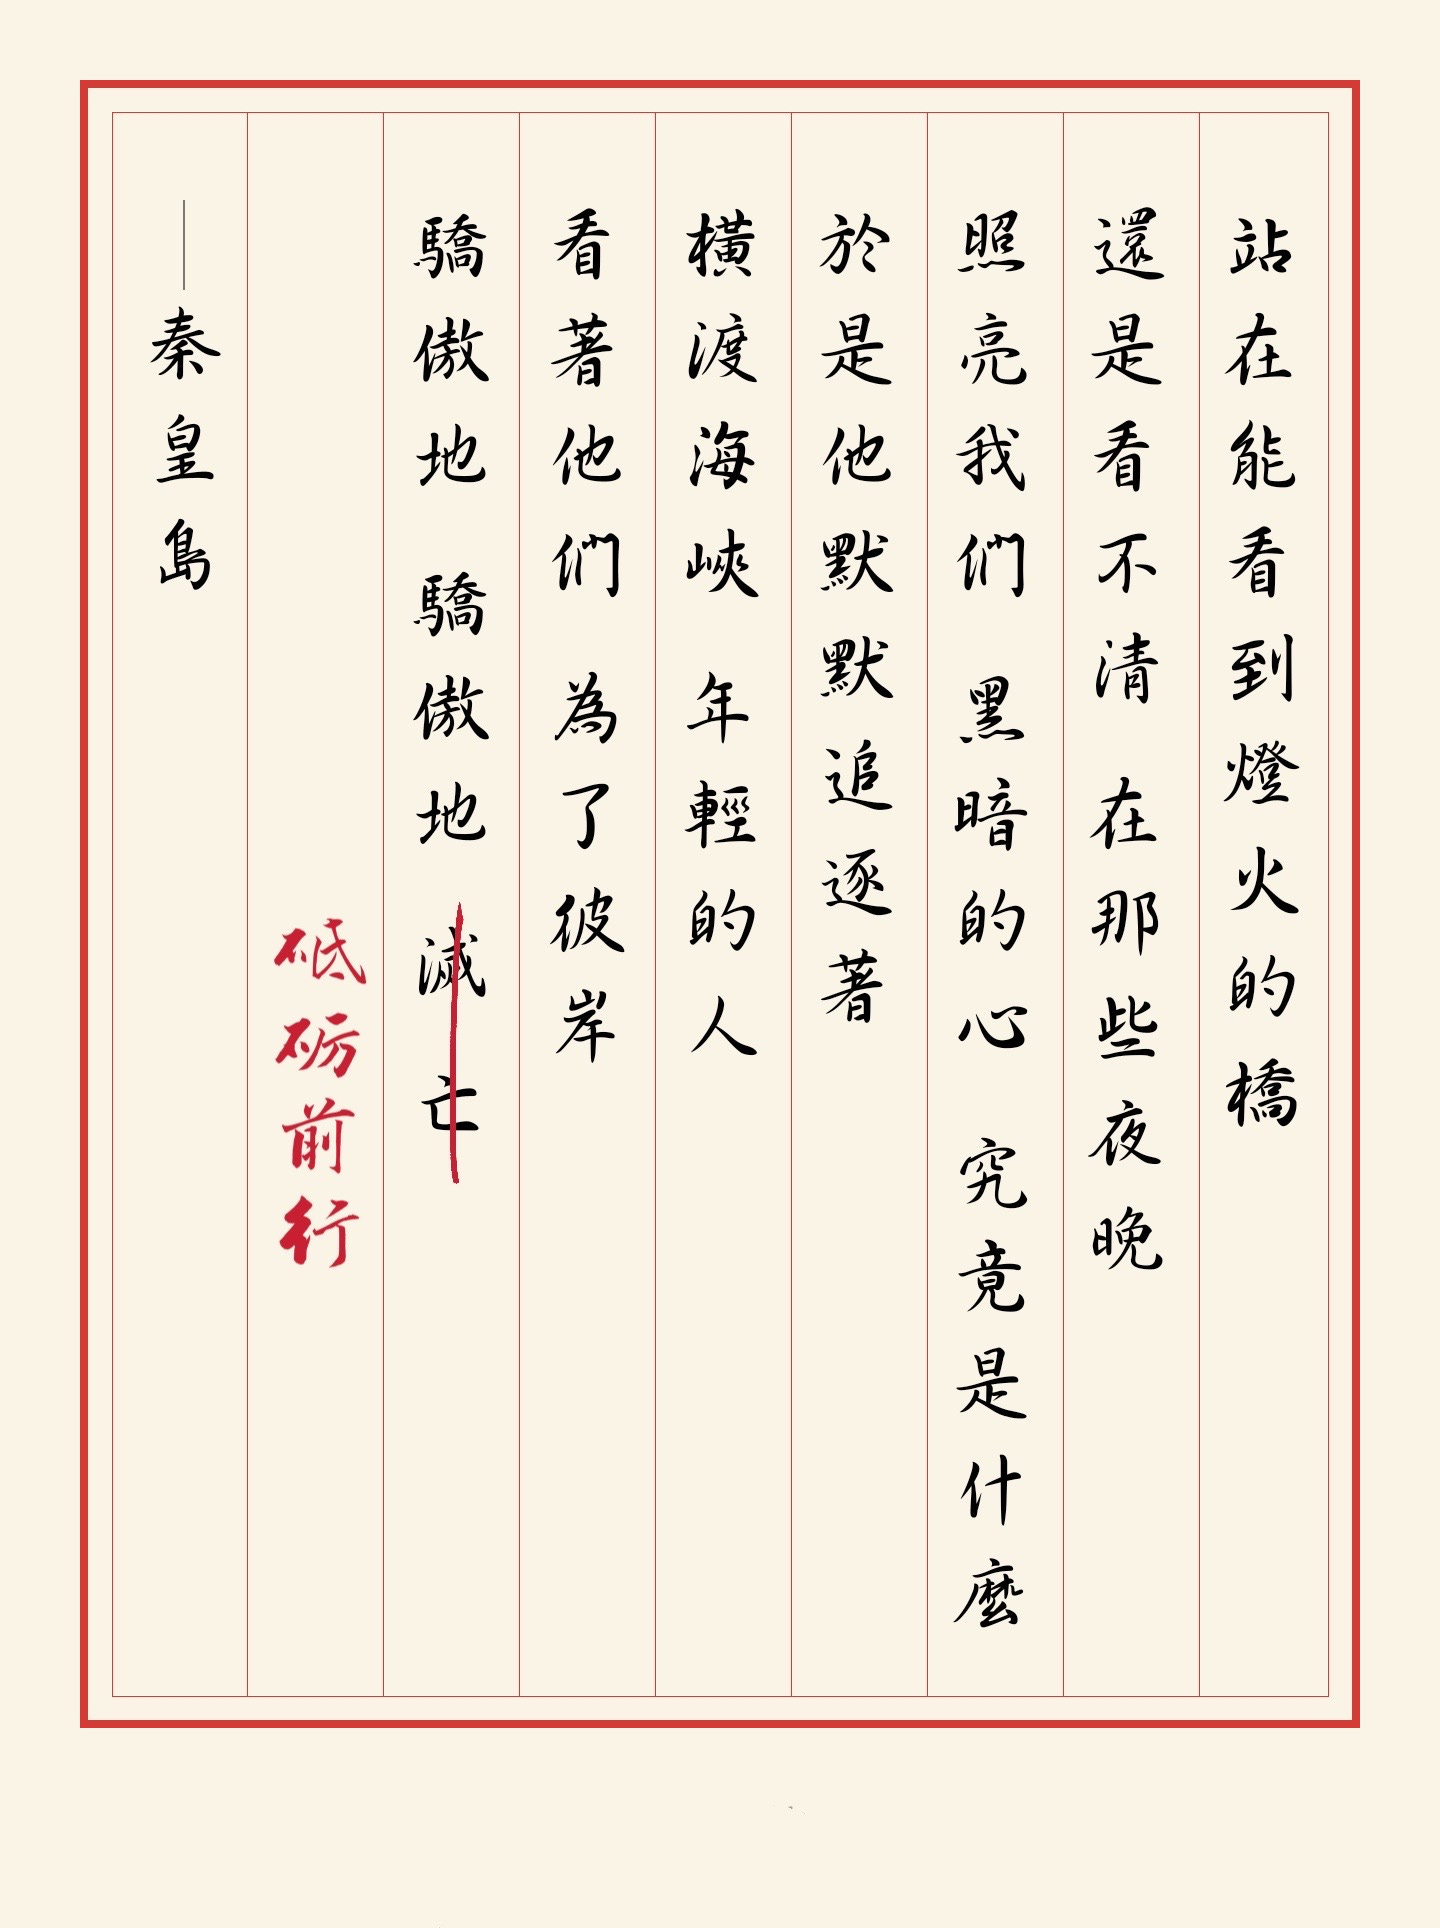 站在能看到燈火的橋
還是看不清 在那些夜晚
照亮我們 黑暗的心 究竟是什麼
於是他默默追逐著
橫渡海峽 年輕的人
看著他們 為了彼岸
驕傲地 驕傲地 滅亡
砥砺前行
——秦皇島